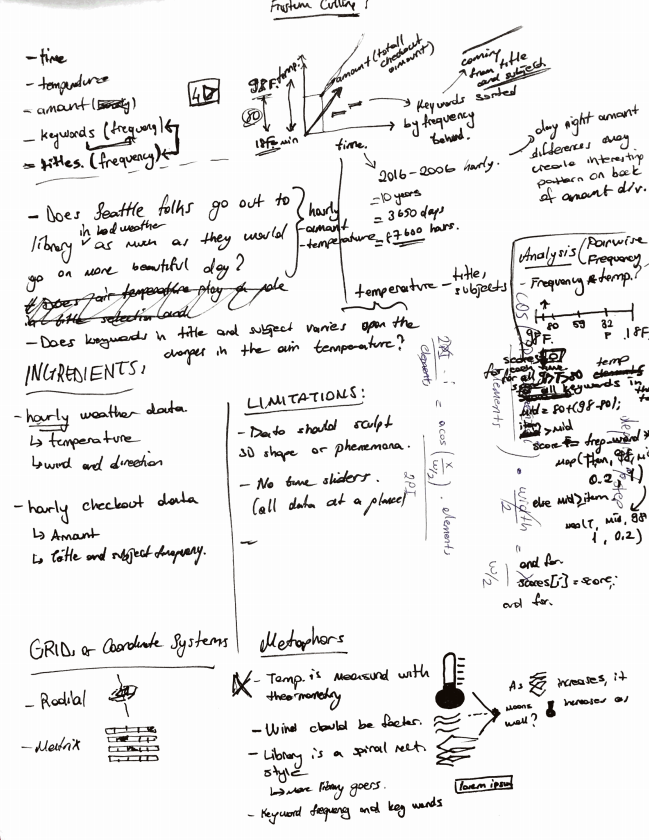 Frustum Culling!
- time
- temperature
- amount (body)
- keywords (frequency)
= titles. (frequency)
4D
98F. temp.
80
18F. min
amount (totall checkout amount)
time.
Keywords
by frequency
behind.
coming
from title
and subject
sorted
2016-2006 hourly.
= 10 years
= 3650 days
= 87600 hours.
day night amount
differences may
create interesting
pattern on back
of amount div.
- Does Seattle folks go out to
library in bad weather as much as they would
go on more beautiful day?
hourly
- amount
- temperature
# Does air temperature play a role
in title selection and
- Does keywords in title and subject varies upon the
changes in the air temperature?
temperature - title,
subjects
INGREDIENTS:
- hourly weather data
↳ temperature
↳ wind and direction
- hourly checkout data
↳ Amount
↳ title and subject frequency.
LIMITATIONS:
- Data should sculpt
3D shape or phenemona.
- No time sliders.
(all data at a place)
-
2PI
elements
i = acos (x / w/2) . elements
2PI
cos
elements
width
2
w/2
Analysis (Pairwise
Frequency
- Frequency * temp?
98F.
80 59 32
F .18F
scores
for all
temp
all keywords in
mid = 80+(98-80);
> mid
score = freq_word *
map(
0.2, 1)
else mid > item
map(T, mid, 98
1, 0.2)
end for.
scores[i] = score;
end for.
GRIDs or Coordinate Systems
- Radial
- Matrix
Metaphors
- Temp. is measured with
thermometry
- Wind could be factor.
- Library is a spiral rect.
style
↳ more library goers.
- Keyword frequency and key words
As increases, it
means increases as
well?
lorem ipsum